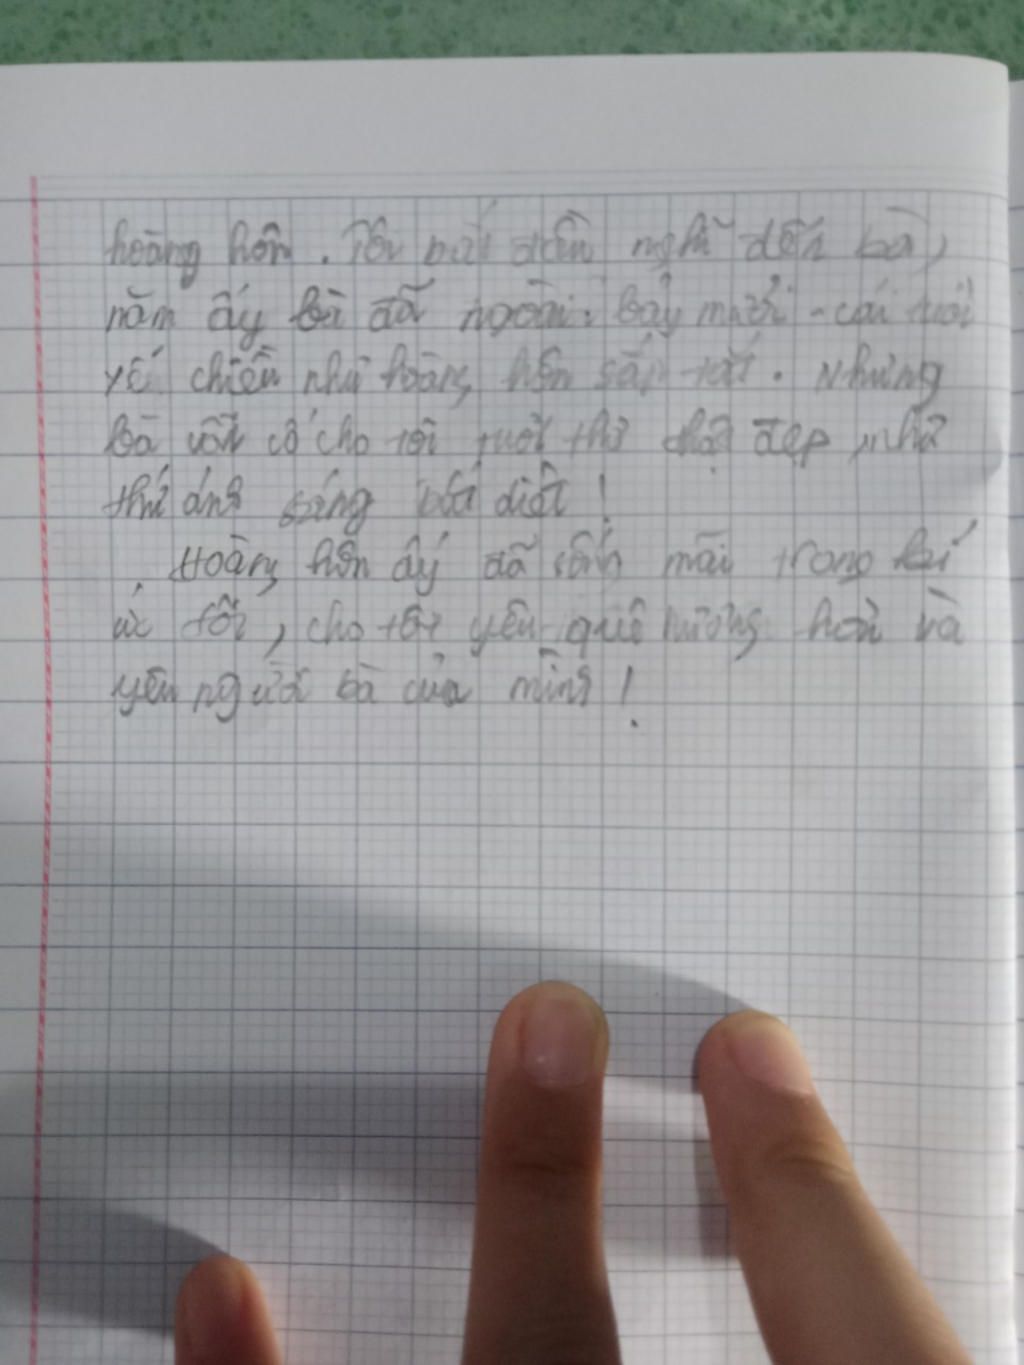 hoàng hôn. Tôi bất điền nghĩ đến bà,
năm ấy bà đã ngoài bảy mươi - cái tuổi
yế chiều như hoàng hôn sắp tắt. Nhưng
bà vẫn cố cho tôi tuổi thơ thật đẹp, như
thứ ánh sáng bất diệt!
Hoàng hôn ấy đã sống mãi trong kí
ức tôi, cho tôi yêu quê hương hơn và
yêu người bà của mình!